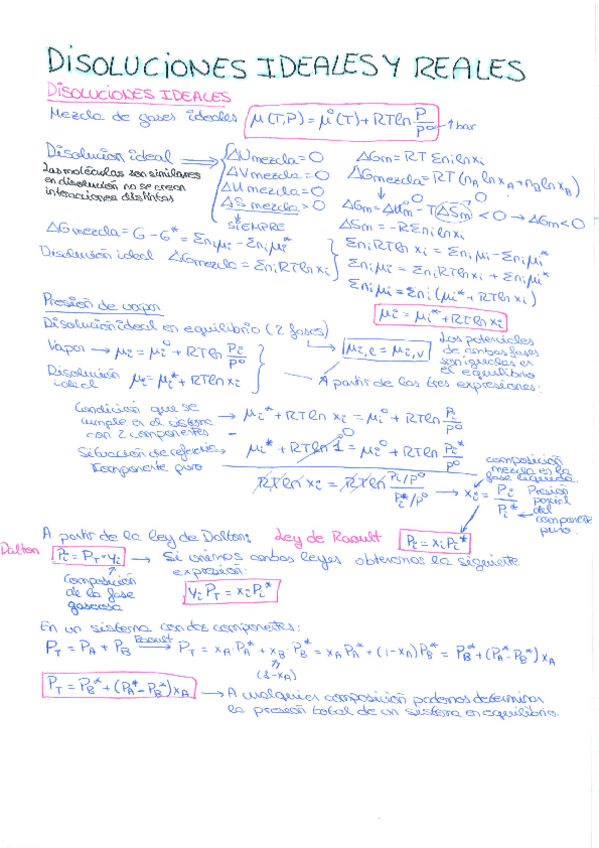 DISOLUCIONES IDEALES Y REALES
DISOLUCIONES IDEALES
Mezcla de gases ideales μ(T,P) = μ°(T) + RTln P/P° → 1 bar
Disolución ideal
Las moléculas son similares
en disolución no se crean
interacciones distintas
ΔUmezcla = 0
ΔVmezcla = 0
ΔHmezcla = 0
ΔSmezcla > 0
SIEMPRE
ΔGm = RT Σni lnxi
ΔGmezcla = RT (nA lnxA + nB lnxB)
ΔGm = ΔHm - T(ΔSm) < 0 → ΔGm < 0
ΔSm = -RΣni lnxi
ΔGmezcla = G - G* = Σniμi - Σniμi*
Disolución ideal ΔGmezcla = ΣniRTlnxi
ΣniRTlnxi = Σniμi - Σniμi*
Σniμi = ΣniRTlnxi + Σniμi*
Σniμi = Σni(μi* + RTlnxi)
μi = μi* + RTlnxi
Presión de vapor
Disolución ideal en equilibrio (2 fases)
Vapor → μi = μi° + RTln Pi/P°
Disolución ideal μi = μi* + RTlnxi
μi,l = μi,v
Los potenciales
de ambas fases
son iguales en
el equilibrio
A partir de las tres expresiones:
Condición que se
cumple en el sistema
con 2 componentes
→ μi* + RTln xi = μi° + RTln Pi/P°
Situación de referencia
Componente puro
μi* + RTln 1 = μi° + RTln Pi*/P°
0
RTln xi = RTln (Pi/P°)/(Pi*/P°) → xi = Pi/Pi*
composición
mezcla en la
fase líquida
Presión
parcial
del
componente
puro
A partir de la ley de Dalton: Ley de Raoult Pi = xiPi*
Dalton Pi = PT·yi → Si unimos ambas leyes obtenemos la siguiente
expresión:
Composición
de la fase
gaseosa
yiPT = xiPi*
En un sistema con dos componentes:
PT = PA + PB Raoult → PT = xA·PA* + xB·PB* = xAPA* + (1-xA)PB* = PB* + (PA*-PB*)xA
(1-xA)
PT = PB* + (PA*-PB*)xA → A cualquier composición podemos determinar
la presión total de un sistema en equilibrio.